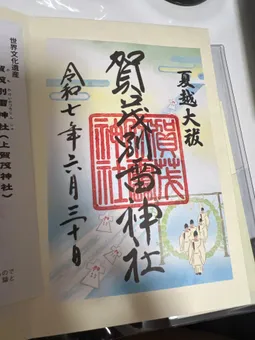 夏越大祓
賀茂別雷神社
賀茂
神社
令和七年六月三十日
世界文化遺産
賀茂別雷神社(上賀茂神社)